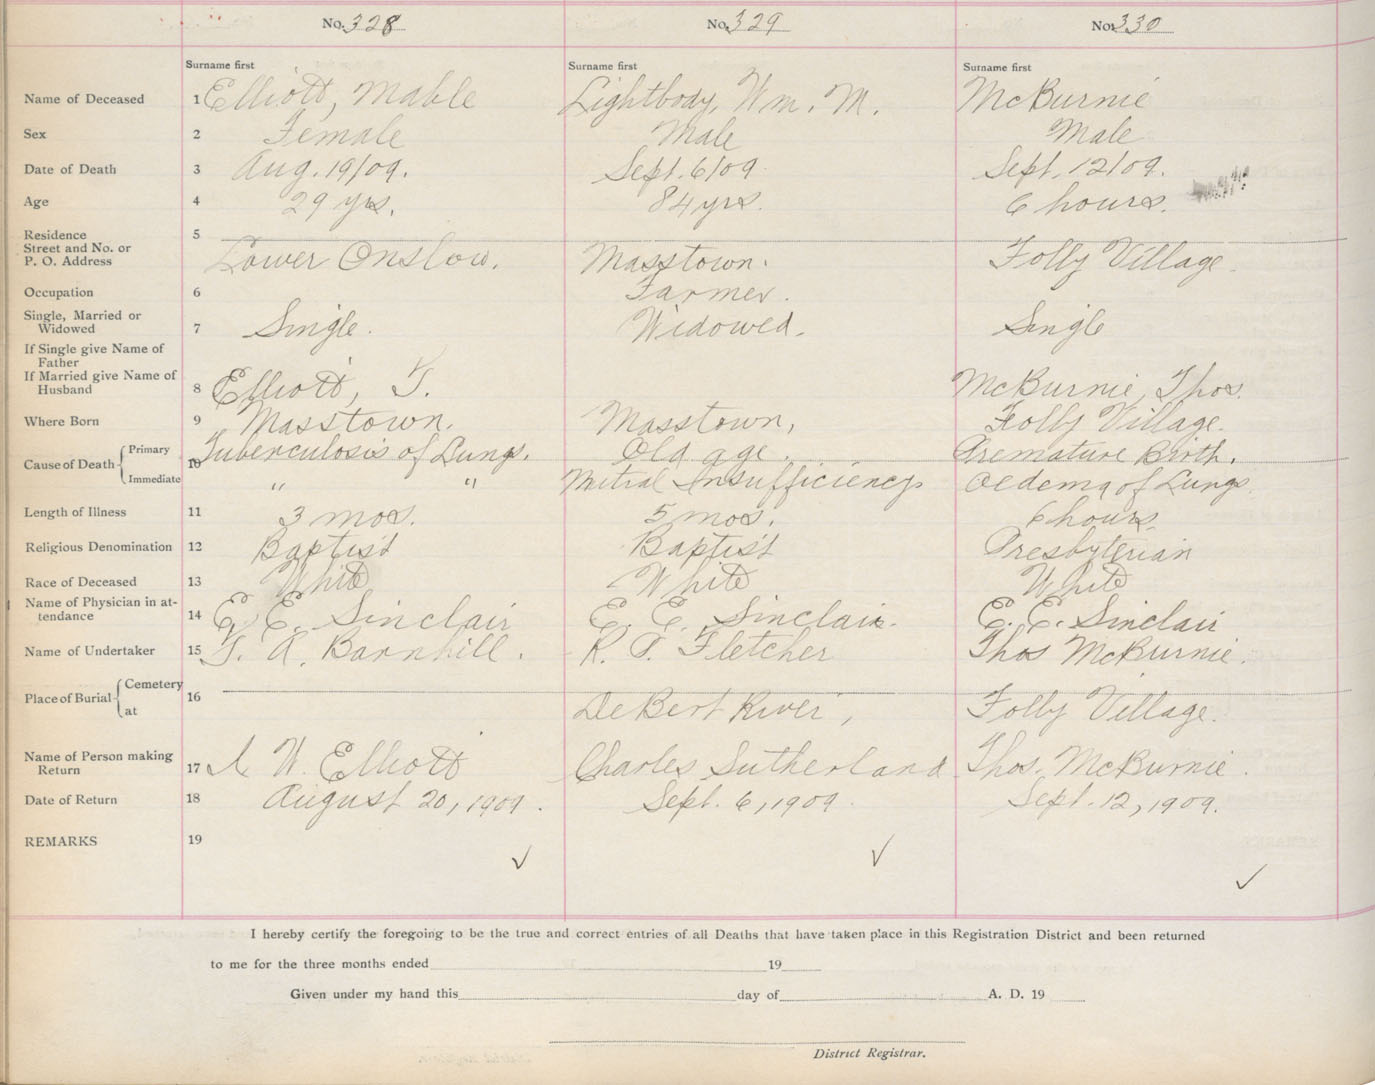 No. 328 No. 329 No. 330
Surname first Surname first Surname first
Name of Deceased 1 Elliott, Mable Lightbody, Wm. M. McBurnie
Sex 2 Female Male Male
Date of Death 3 Aug. 19/09. Sept. 6/09 Sept. 12/09.
Age 4 29 yrs. 84 yrs. 6 hours.
Residence 5
Street and No. or
P. O. Address Lower Onslow. Masstown. Folly Village.
Occupation 6 Farmer.
Single, Married or
Widowed 7 Single. Widowed. Single
If Single give Name of
Father
If Married give Name of
Husband 8 Elliott, T. McBurnie, Thos.
Where Born 9 Masstown. Masstown, Folly Village.
Cause of Death Primary 10 Tuberculosis of Lungs. Old age. Premature Birth.
Immediate " " Mitral Insufficiency Oedema of Lungs.
Length of Illness 11 3 mos. 5 mos. 6 hours.
Religious Denomination 12 Baptist Baptist Presbyterian
Race of Deceased 13 White White White
Name of Physician in at-
tendance 14 E. E. Sinclair E. E. Sinclair. E. E. Sinclair
Name of Undertaker 15 F. A. Barnhill. R. T. Fletcher Thos McBurnie.
Place of Burial Cemetery 16
at DeBert River, Folly Village.
Name of Person making
Return 17 W. Elliott Charles Sutherland Thos. McBurnie.
Date of Return 18 August 20, 1909. Sept. 6, 1909. Sept. 12, 1909.
REMARKS 19
✓ ✓ ✓
I hereby certify the foregoing to be the true and correct entries of all Deaths that have taken place in this Registration District and been returned
to me for the three months ended 19
Given under my hand this day of A. D. 19
District Registrar.